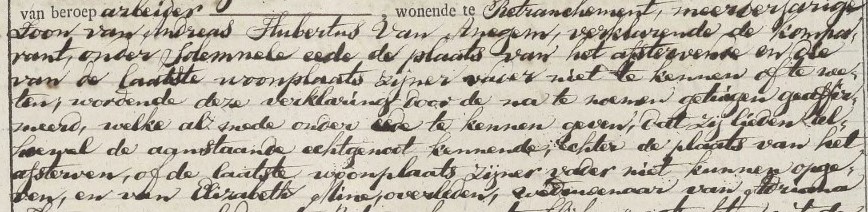 van beroep arbeider, wonende te Retranchement, meerderjarige
Zoon van Andreas Hubertus Van Anegem, verklarende de kompa-
rant, onder Solemnele eede de plaats van het afsterven en die
van de laatste woonplaats zijner vader niet te kennen of te we-
ten, wordende deze verklaring door de na te noemen getuigen geaffir-
meerd, welke al mede onder eede te kennen geven, dat zij lieden al-
hoewel de aanstaande echtgenoot kennende, echter de plaats van het
afsterven, of de laatste woonplaats zijner vader niet kunnen opge-
ven, en van Elizabeth Mine, overleden, weduwenaar van Adriana